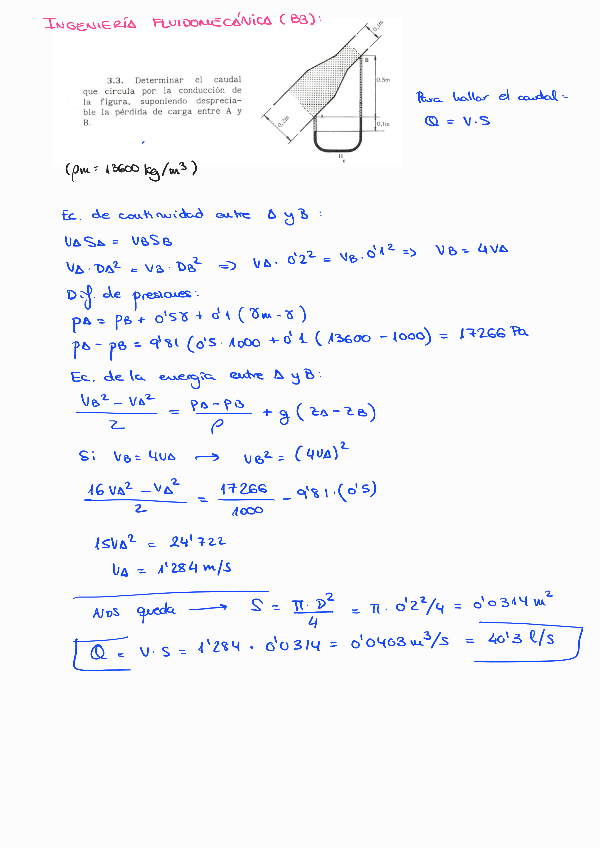 INGENIERÍA FLUIDOMECÁNICA (B3):
3.3. Determinar el caudal
que circula por la conducción de
la figura, suponiendo desprecia-
ble la pérdida de carga entre A y
B.
0,1m
B
0,5m
0,2m
A
0,1m
H
Para hallar el caudal:
Q = V·S
(ρm = 13600 kg/m³)
Ec. de continuidad entre A y B:
VA SA = VB SB
VA · DA² = VB · DB² => VA · 0'2² = VB · 0'1² => VB = 4VA
Dif. de presiones:
pA = pB + 0'5γ + 0'1 (γm - γ)
pA - pB = 9'81 (0'5 · 1000 + 0'1 (13600 - 1000) = 17266 Pa
Ec. de la energía entre A y B:
(VB² - VA²)/2 = (pA - pB)/ρ + g (zA - zB)
Si VB = 4VA → VB² = (4VA)²
(16 VA² - VA²)/2 = 17266/1000 - 9'81 · (0'5)
15VA² = 24'722
VA = 1'284 m/s
Nos queda → S = π · D²/4 = π · 0'2²/4 = 0'0314 m²
Q = V · S = 1'284 · 0'0314 = 0'0403 m³/s = 40'3 l/s